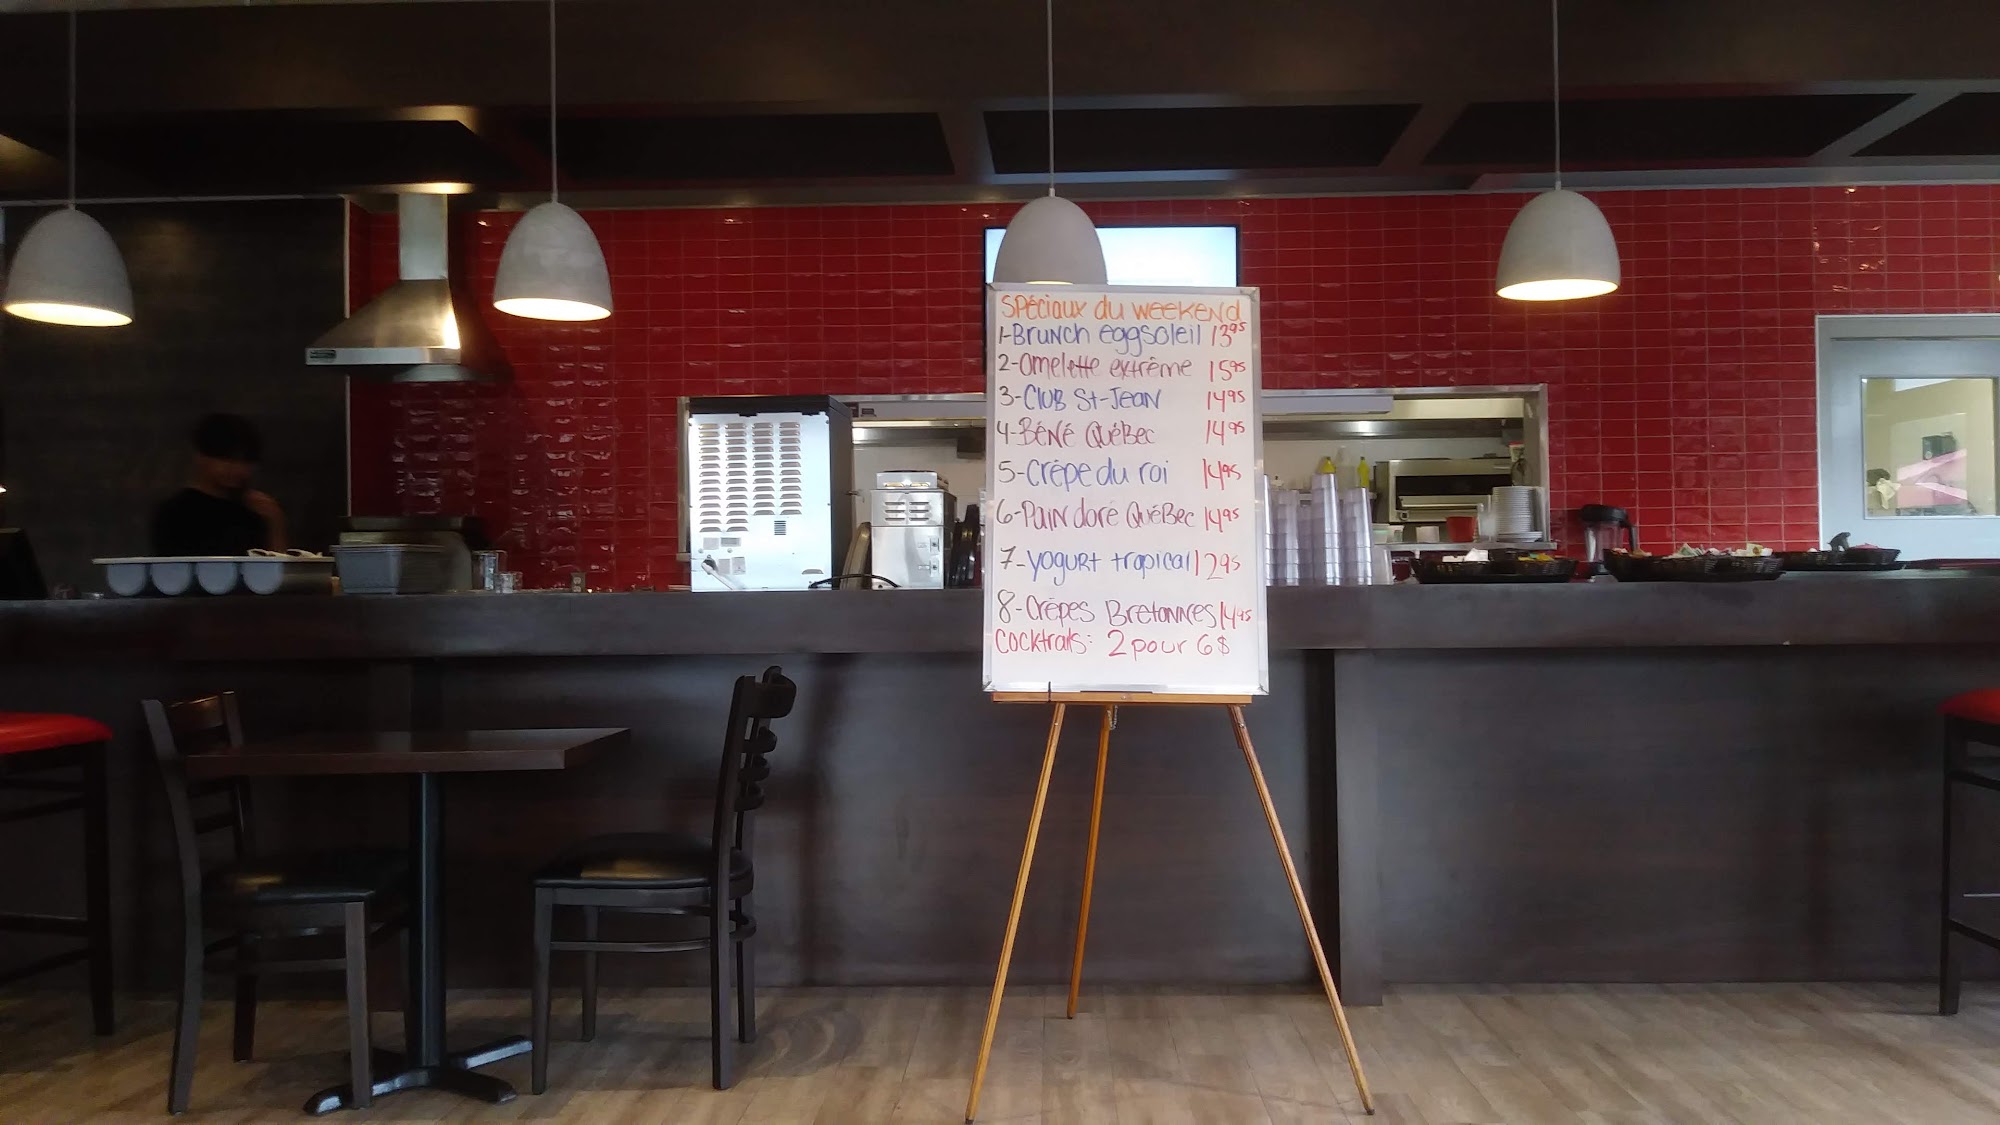 Spéciaux du weekend
1-Brunch eggsoleil 13⁹⁵
2-Omelette extrême 15⁹⁵
3-Club St-Jean 14⁹⁵
4-Béné Québec 14⁹⁵
5-Crêpe du roi 14⁹⁵
6-Pain doré Québec 14⁹⁵
7-Yogurt tropical 12⁹⁵
8-Crêpes Bretonnes 14⁹⁵
Cocktails: 2 pour 6$